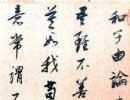 和子由論書
吾雖不善
莫如我苟
意常謂不